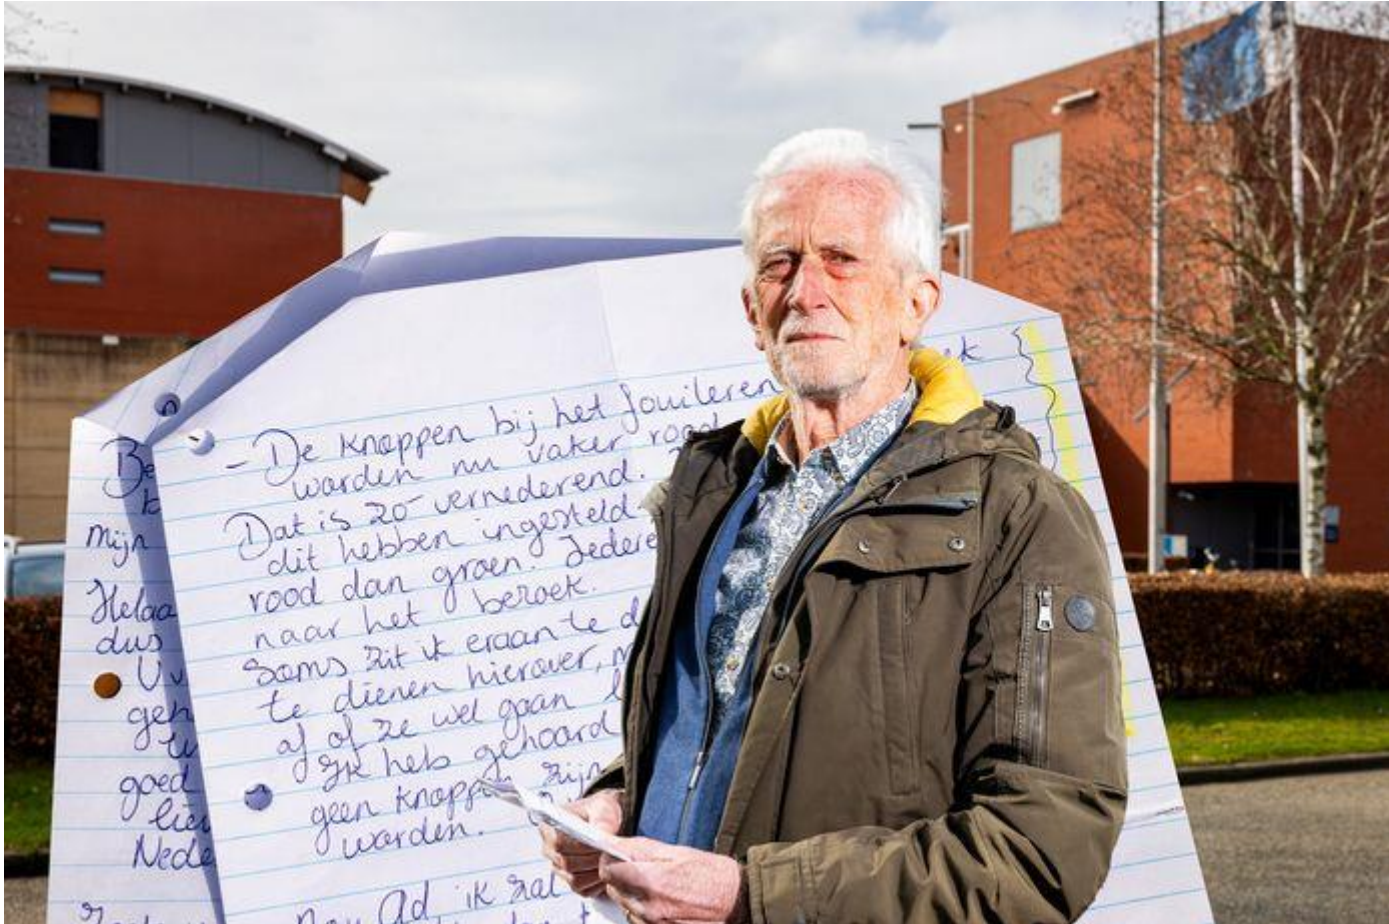 Be
Mijn
Helaa
dus
geh
goed
liev
Nede
- De knoppen bij het fouileren ek
worden nu vaker rood
Dat is zo vernederend.
dit hebben ingesteld
rood dan groen. Iedere
naar het bezoek.
Soms zit ik eraan te d
te dienen hierover, m
af of ze wel gaan
Ik heb gehoord
geen knoppen zijn
worden.
Nou Ad ik zal